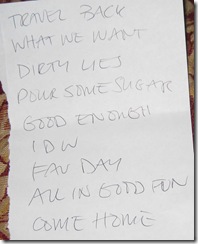 TRAVEL BACK
WHAT WE WANT
DIRTY LIES
POUR SOME SUGAR
GOOD ENOUGH
IDW
FAV DAY
ALL IN GOOD FUN
COME HOME